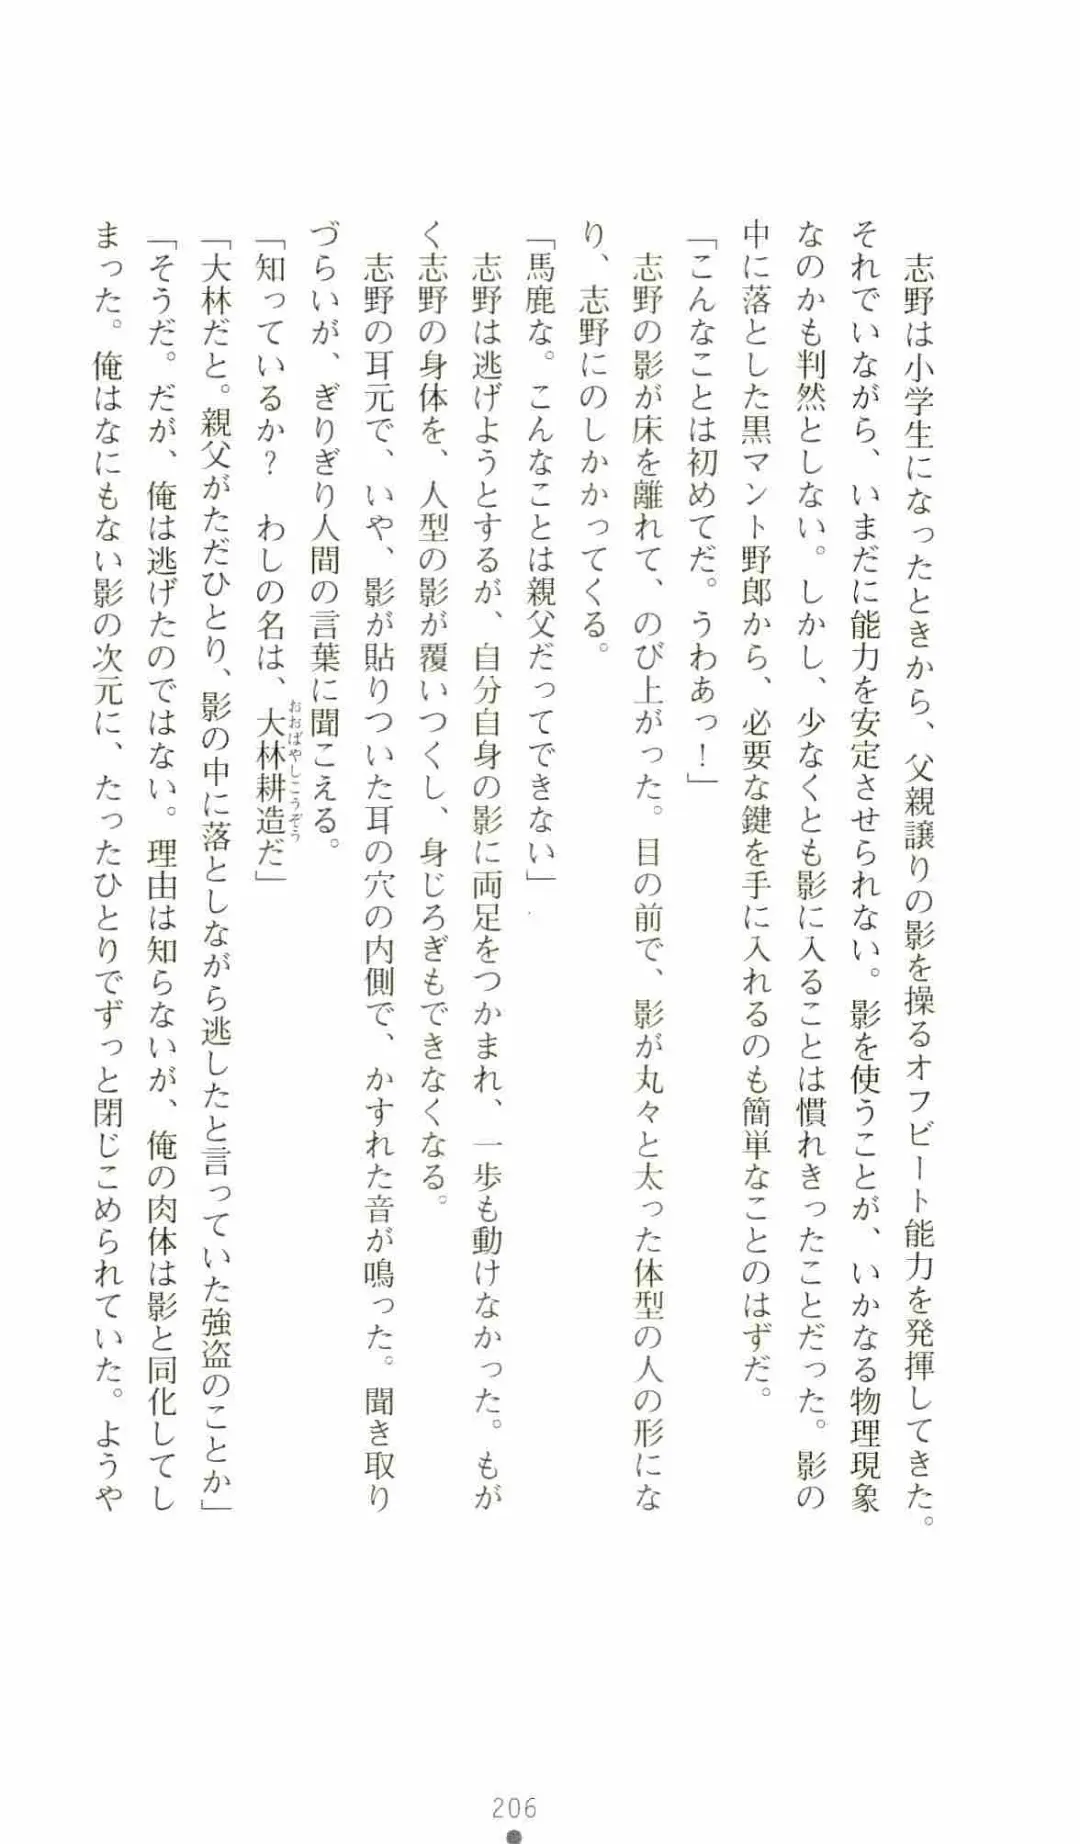 志野は小学生になったときから、父親譲りの影を操るオフビート能力を発揮してきた。
それでいながら、いまだに能力を安定させられない。影を使うことが、いかなる物理現象
なのかも判然としない。しかし、少なくとも影に入ることは慣れきったことだった。影の
中に落とした黒マント野郎から、必要な鍵を手に入れるのも簡単なことのはずだ。
「こんなことは初めてだ。うわあっ！」
志野の影が床を離れて、のび上がった。目の前で、影が丸々と太った体型の人の形にな
り、志野にのしかかってくる。
「馬鹿な。こんなことは親父だってできない」
志野は逃げようとするが、自分自身の影に両足をつかまれ、一歩も動けなかった。もが
く志野の身体を、人型の影が覆いつくし、身じろぎもできなくなる。
志野の耳元で、いや、影が貼りついた耳の穴の内側で、かすれた音が鳴った。聞き取り
づらいが、ぎりぎり人間の言葉に聞こえる。
「知っているか？　わしの名は、大林耕造だ」
おおばやしこうぞう
「大林だと。親父がただひとり、影の中に落としながら逃したと言っていた強盗のことか」
「そうだ。だが、俺は逃げたのではない。理由は知らないが、俺の肉体は影と同化してし
まった。俺はなにもない影の次元に、たったひとりでずっと閉じこめられていた。ようや
206